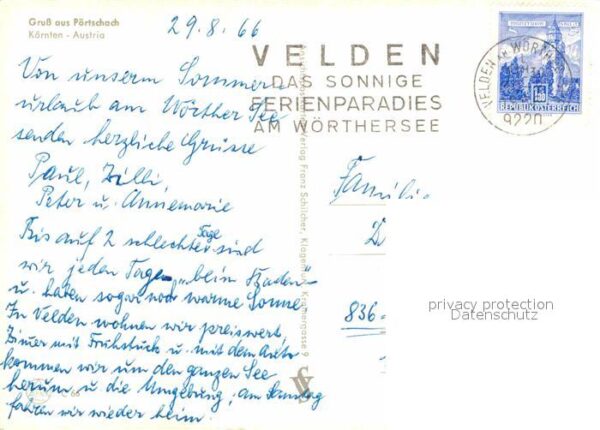 Gruß aus Pörtschach
Kärnten - Austria
29.8.66
VELDEN
DAS SONNIGE
FERIENPARADIES
AM WÖRTHERSEE
VELDEN
9220
REPUBLIK ÖSTERREICH
Von unserm Sommer
urlaub am Wörther See
senden herzliche Grüsse
Paul, Zilli,
Peter u. Annemarie
Bis auf 2 schlechte Tage sind
wir jeden Tag beim Baden
u. haben sogar noch warme Sonne
In Velden wohnen wir preiswert,
Zimmer mit Frühstück u. mit dem Auto
kommen wir um den ganzen See
herum u. die Umgebung; am Samstag
fahren wir wieder heim.
Verlag Franz Schilcher, Klagenfurt, Kramergasse 9
Familie
836-
privacy protection
Datenschutz